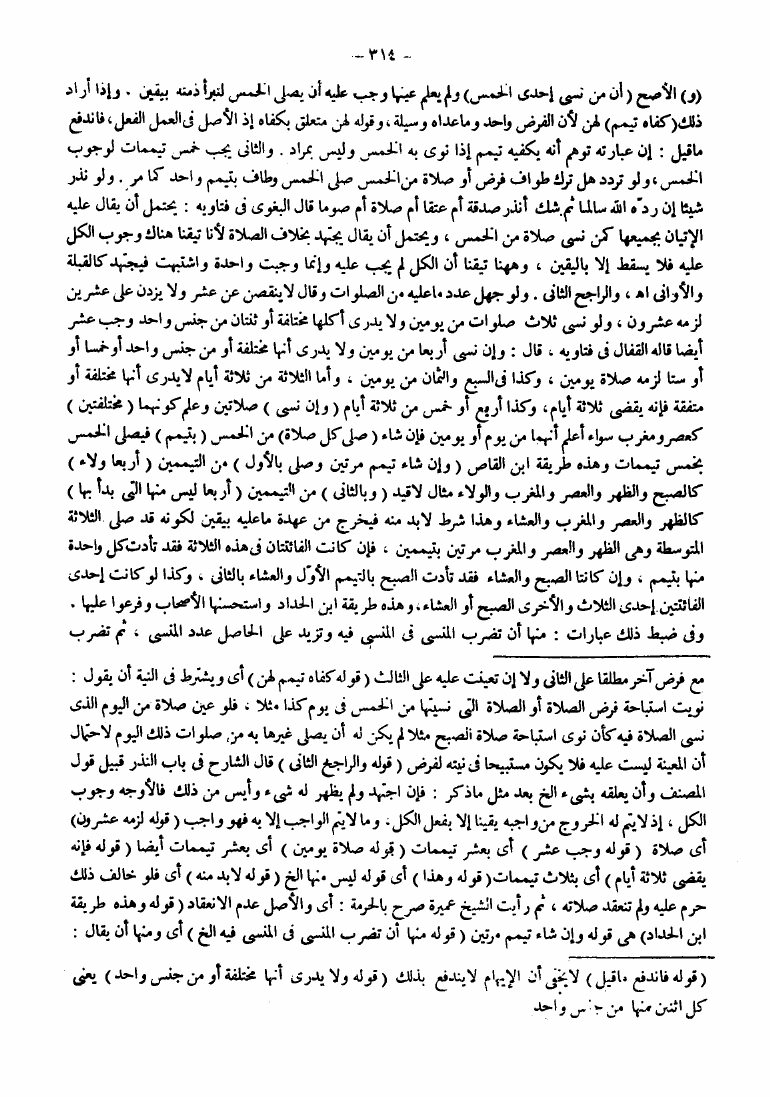 - ٣١٤ -
(و) الأصح ( أن من نسى إحدى الخمس) ولم يعلم عينها وجب عليه أن يصلى الخمس لتبرأ ذمته بيقين . وإذا أراد
ذلك(كفاه تيمم) لهن لأن الفرض واحد وماعداه وسيلة ، وقوله لهن متعلق بكفاه إذ الأصل فى العمل الفعل ، فاندفع
ماقيل : إن عبارته توهم أنه يكفيه تيمم إذا نوى به الخمس وليس بمراد . والثانى يجب خمس تيممات لوجوب
الخمس ، ولو تردد هل ترك طواف فرض أو صلاة من الخمس صلى الخمس وطاف بتيمم واحد كما مر . ولو نذر
شيئا إن ردّه الله سالما ثم شك أنذر صدقة أم عتقا أم صلاة أم صوما قال البغوى فى فتاويه : يحتمل أن يقال عليه
الإتيان بجميعها كمن نسى صلاة من الخمس ، ويحتمل أن يقال يجتهد بخلاف الصلاة لأنا تيقنا هناك وجوب الكل
عليه فلا يسقط إلا باليقين ، وههنا تيقنا أن الكل لم يجب عليه وإنما وجبت واحدة واشتبهت فيجتهد كالقبلة
والأوانى اه ، والراجح الثانى . ولو جهل عدد ماعليه من الصلوات وقال لاينقصن عن عشر ولا يزدن على عشرين
لزمه عشرون ، ولو نسى ثلاث صلوات من يومين ولا يدرى أكلها مختلفة أو ثنتان من جنس واحد وجب عشر
أيضا قاله القفال فى فتاويه ، قال : وإن نسى أربعا من يومين ولا يدرى أنها مختلفة أو من جنس واحد أو خمسا أو
أو ستا لزمه صلاة يومين ، وكذا فى السبع والثمان من يومين ، وأما الثلاثة من ثلاثة أيام لايدرى أنها مختلفة أو
متفقة فإنه يقضى ثلاثة أيام ، وكذا أربع أو خمس من ثلاثة أيام ( وإن نسى ) صلاتين وعلم كونهما ( مختلفتين )
كعصر ومغرب سواء أعلم أنهما من يوم أو يومين فإن شاء ( صلى كل صلاة ) من الخمس ( بتيمم ) فيصلى الخمس
بخمس تيممات وهذه طريقة ابن القاص ( وإن شاء تيمم مرتين وصلى بالأول ) من التيممين ( أربعا ولاء )
كالصبح والظهر والعصر والمغرب والولاء مثال لاقيد ( وبالثانى ) من التيممين ( أربعا ليس منها التى بدأ بها )
كالظهر والعصر والمغرب والعشاء وهذا شرط لابد منه فيخرج من عهدة ماعليه بيقين لكونه قد صلى الثلاثة
المتوسطة وهى الظهر والعصر والمغرب مرتين بتيممين ، فإن كانت الفائتتان فى هذه الثلاثة فقد تأدت كل واحدة
منها بتيمم ، وإن كانتا الصبح والعشاء فقد تأدت الصبح بالتيمم الأول والعشاء بالثانى ، وكذا لو كانت إحدى
الفائتتين إحدى الثلاث والأخرى الصبح أو العشاء ، وهذه طريقة ابن الحداد واستحسنها الأصحاب وفرعوا عليها .
وفى ضبط ذلك عبارات : منها أن تضرب المنسى فى المنسى فيه وتزيد على الحاصل عدد المنسى ، ثم تضرب
مع فرض آخر مطلقا على الثانى ولا إن تعينت عليه على الثالث ( قوله كفاه تيمم لهن ) أى ويشترط فى النية أن يقول :
نويت استباحة فرض الصلاة أو الصلاة التى نسيتها من الخمس فى يوم كذا مثلا ، فلو عين صلاة من اليوم الذى
نسى الصلاة فيه كأن نوى استباحة صلاة الصبح مثلا لم يكن له أن يصلى غيرها به من صلوات ذلك اليوم لاحتمال
أن المعينة ليست عليه فلا يكون مستبيحا فى نيته لفرض ( قوله والراجح الثانى ) قال الشارح فى باب النذر قبيل قول
المصنف وأن يعلقه بشىء الخ بعد مثل ماذكر : فإن اجتهد ولم يظهر له شىء وأيس من ذلك فالأوجه وجوب
الكل ، إذ لايتم له الخروج من واجبه يقينا إلا بفعل الكل ، وما لايتم الواجب إلا به فهو واجب ( قوله لزمه عشرون)
أى صلاة ( قوله وجب عشر ) أى بعشر تيممات ( قوله صلاة يومين ) أى بعشر تيممات أيضا ( قوله فإنه
يقضى ثلاثة أيام ) أى بثلاث تيممات ( قوله وهذا ) أى قوله ليس منها الخ ( قوله لابد منه ) أى فلو خالف ذلك
حرم عليه ولم تنعقد صلاته ، ثم رأيت الشيخ عميرة صرح بالحرمة : أى والأصل عدم الانعقاد ( قوله وهذه طريقة
ابن الحداد) هى قوله وإن شاء تيمم مرتين ( قوله منها أن تضرب المنسى فى المنسى فيه الخ ) أى ومنها أن يقال :
( قوله فاندفع ماقيل ) لايخفى أن الإيهام لايندفع بذلك ( قوله ولا يدرى أنها مختلفة أو من جنس واحد ) يعنى
كل اثنين منها من جنس واحد